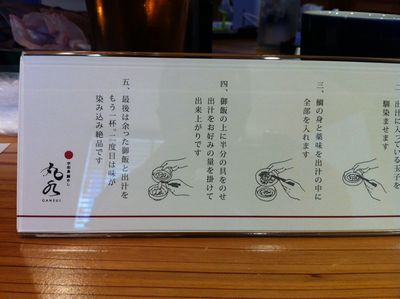 二、出汁に入っている玉子を
馴染ませます
三、鯛の身と薬味を出汁の中に
全部を入れます
四、御飯の上に半分の具をのせ
出汁をお好みの量を掛けて
出来上がりです
五、最後は余った御飯と出汁を
もう一杯。二度目は味が
染み込み絶品です
丸水
GANSUI